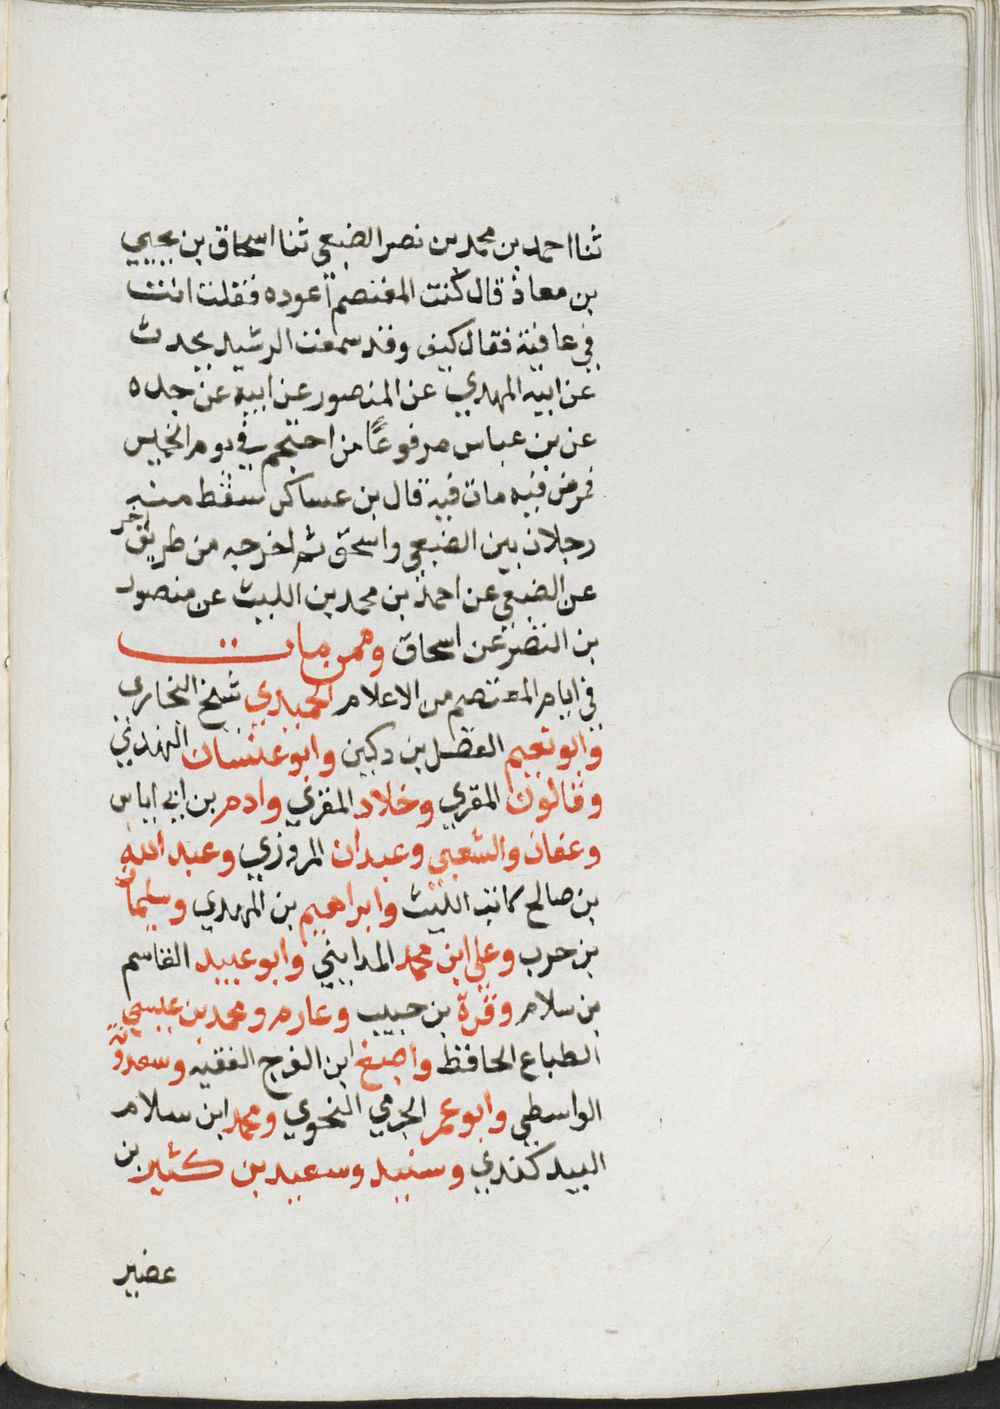 ثنا احمد بن محمد بن نصر الضبعي ثنا اسحاق بن يحيي
بن معاذ قال كنت المعتصم أعوده فقلت انت
في عافية فقال كيف وقد سمعت الرشيد يحدث
عن ابيه المهدي عن المنصور عن ابيه عن جده
عن بن عباس مرفوعًا من احتجم في يوم الخميس
فمرض فيه مات فيه قال بن عساكر سقط منه
رجلان بين الضبعي واسحق ثم اخرجه من طريق اخر
عن الضبعي عن احمد بن محمد بن الليث عن منصور
بن النضر عن اسحاق وممن مات
في ايام المعتصم من الاعلام الحميدي شيخ البخاري
وابو نعيم الفضل بن دكين وابو غسان النهدي
وقالون المقري وخلاد المقري وادم بن ابي اياس
وعفان والشعبي وعبدان المروزي وعبد الله
بن صالح كاتب الليث وابراهيم بن المهدي وسليمان
بن حرب وعلي ابن محمد المدايني وابو عبيد القاسم
بن سلام وقرة بن حبيب وعارم ومحمد بن عيسي
الطباع الحافظ واصبغ ابن الفرج الفقيه وسعدوية
الواسطي وابو عمر الجرمي النحوي ومحمد ابن سلام
البيدكندي وسنيد وسعيد بن كثير بن
عضير